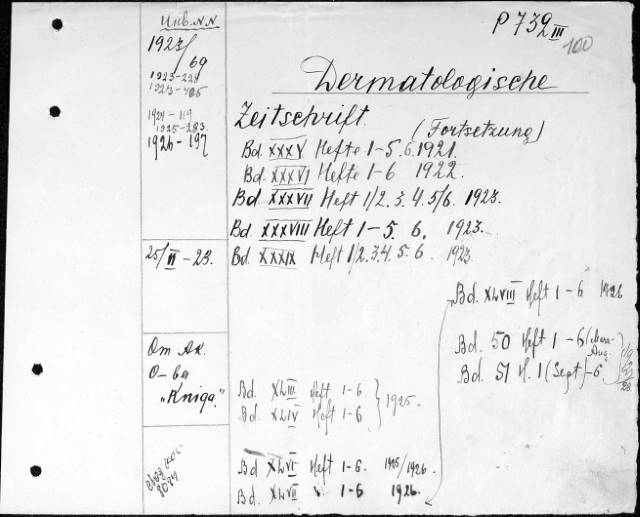 Инв. N.N.
1923/69
1923-228
1923-405
1924-119
1925-283.
1926-197
25/II-23.
От Ак.
О-ва
"Kniga."
P 739 III
100
Dermatologische
Zeitschrift.
(Fortsetzung)
Bd. XXXV Hefte 1-5.6.1921.
Bd. XXXVI Hefte 1-6 1922.
Bd. XXXVII Heft 1/2. 3. 4. 5/6. 1923.
Bd XXXVIII Heft 1-5. 6. 1923.
Bd. XXXIX Heft 1/2.3.4.5.6 1923.
Bd. XLVIII Heft 1-6 1926
Bd. 50 Heft 1-6
Aug.
Bd. 51 H. 1 (Sept)-6
Bd. XLIII Heft 1-6.
Bd. XLIV Heft 1-6
1925.
Bd XLVI Heft 1-6. 1925/1926.
Bd. XLVII " 1-6 1926.